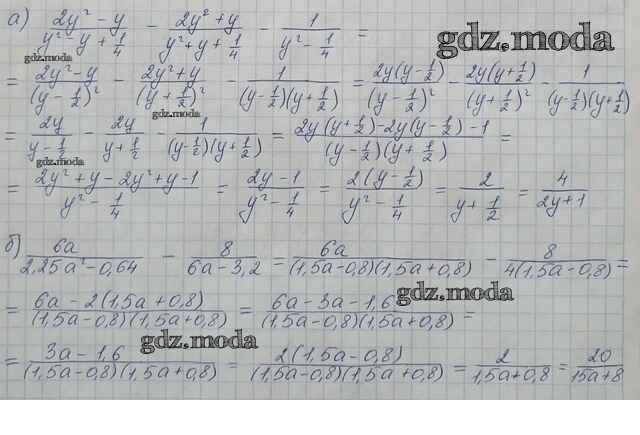 а) (2y² − y)/(y² − y + 1/4) − (2y² + y)/(y² + y + 1/4) − 1/(y² − 1/4) =
gdz.moda
gdz.moda
= (2y² − y)/(y − 1/2)² − (2y² + y)/(y + 1/2)² − 1/((y − 1/2)(y + 1/2)) = 2y(y − 1/2)/(y − 1/2)² − 2y(y + 1/2)/(y + 1/2)² − 1/((y − 1/2)(y + 1/2))
gdz.moda
= 2y/(y − 1/2) − 2y/(y + 1/2) − 1/((y − 1/2)(y + 1/2)) = (2y(y + 1/2) − 2y(y − 1/2) − 1)/((y − 1/2)(y + 1/2)) =
gdz.moda
= (2y² + y − 2y² + y − 1)/(y² − 1/4) = (2y − 1)/(y² − 1/4) = 2(y − 1/2)/(y² − 1/4) = 2/(y + 1/2) = 4/(2y + 1)
б) 6a/(2,25a² − 0,64) − 8/(6a − 3,2) = 6a/((1,5a − 0,8)(1,5a + 0,8)) − 8/(4(1,5a − 0,8)) =
gdz.moda
= (6a − 2(1,5a + 0,8))/((1,5a − 0,8)(1,5a + 0,8)) = (6a − 3a − 1,6)/((1,5a − 0,8)(1,5a + 0,8)) =
gdz.moda
= (3a − 1,6)/((1,5a − 0,8)(1,5a + 0,8)) = 2(1,5a − 0,8)/((1,5a − 0,8)(1,5a + 0,8)) = 2/(1,5a + 0,8) = 20/(15a + 8)